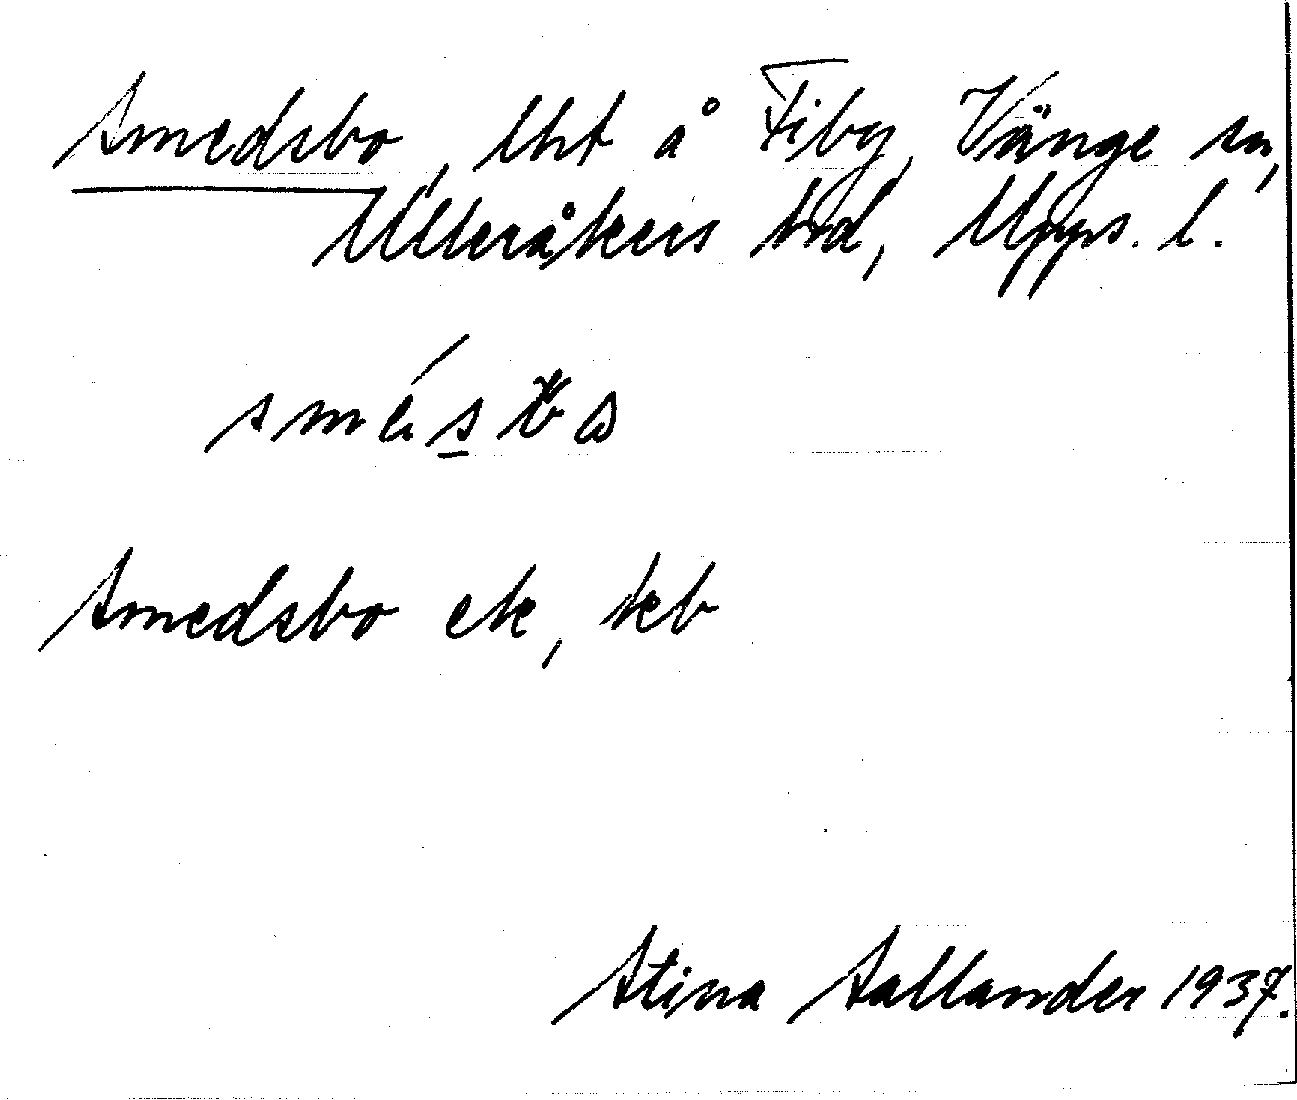 Smedsbo, lht å Fiby, Vänge sn,
Ulleråkers hrd, Upps. l.
Smedsbo ek, hkb
Stina Sallander 1937.